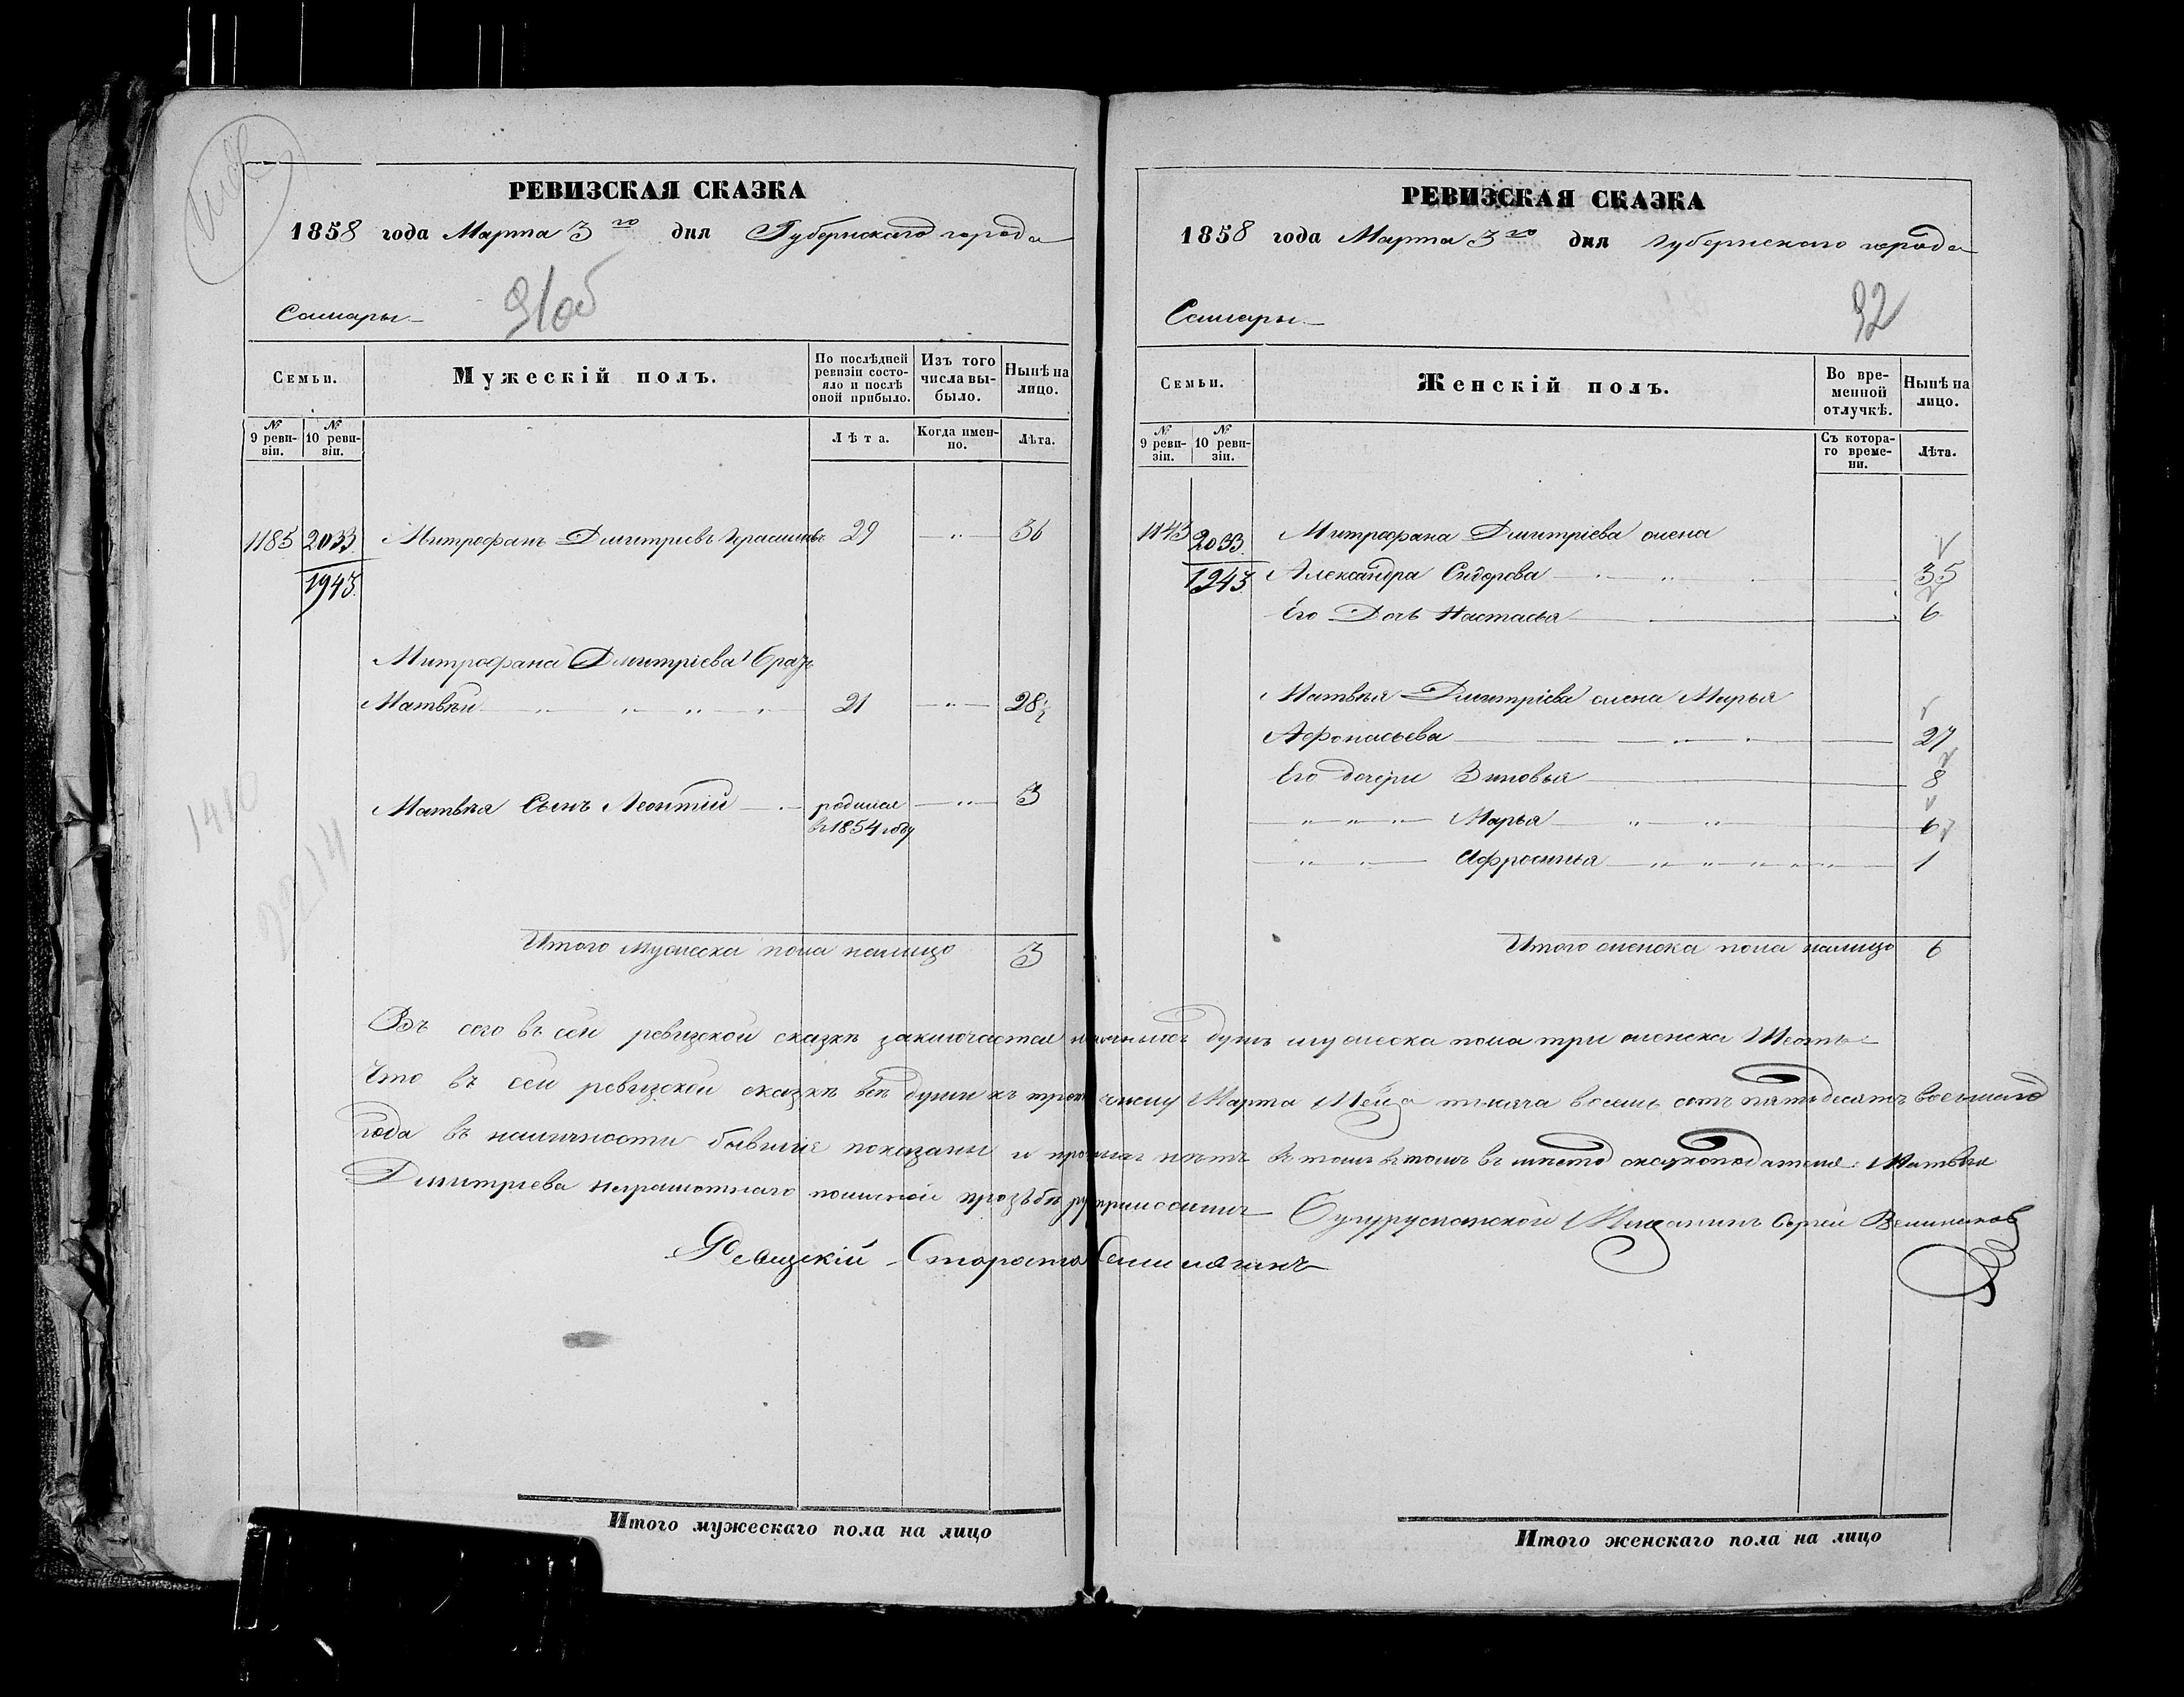 РЕВИЗСКАЯ СКАЗКА
1858 года Марта 3го дня Губернскаго города
91об
Самары
Семьи.
Мужескій полъ.
По послѣдней ревизіи состояло и послѣ оной прибыло.
Изъ того числа выбыло.
Нынѣ на лицо.
№ 9 ревизіи.
№ 10 ревизіи.
Лѣта.
Когда именно.
Лѣта.
1185 2033 Митрофанъ Дмитріевъ 29 — „ — 36
1943
Митрофана Дмитріева братъ
Матвѣй 21 — „ — 28½
Матвѣя Сынъ Леонтій родился — „ — 3
въ 1854 году
Итого мужеска пола налицо 3
РЕВИЗСКАЯ СКАЗКА
1858 года Марта 3го дня Губернскаго города
92
Самары
Семьи.
Женскій полъ.
Во временной отлучкѣ.
Нынѣ на лицо.
№ 9 ревизіи.
№ 10 ревизіи.
Съ котораго времени.
Лѣта.
1143 2033 Митрофана Дмитріева жена
1943 Александра Сидорова 35
Его Дочь Настасья 6
Матвѣя Дмитріева жена Марья
Афонасьева 27
Его дочери Зиновья 8
Марья 6
Афросинья 1
Итого женска пола налицо 6
сего въ сей ревизской сказкѣ заключается наличныхъ душъ мужеска пола три женска Шесть
Что въ сей ревизской сказкѣ всѣ души къ числу Марта тысяча восемь сотъ пятьдесятъ восьмаго
года въ наличности бывшіе показаны и нѣтъ въ томъ въ мѣсто сказкоподателя Матвѣя
Дмитріева неграмотнаго прозьбѣ Бугурусланской Мещанинъ Сергей
Ревизскій Староста
Итого мужескаго пола на лицо
Итого женскаго пола на лицо